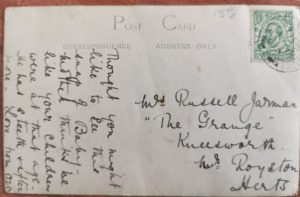 POST CARD
CORRESPONDENCE
ADDRESS ONLY
Thought you might
like to see this
snap of Baby -
mother thinks he
like your children
were at that age -
He has 8 teeth & after
more - Love from
Mrs Russell Jarman
"The Grange"
Kneesworth.
Nr Royston
Herts